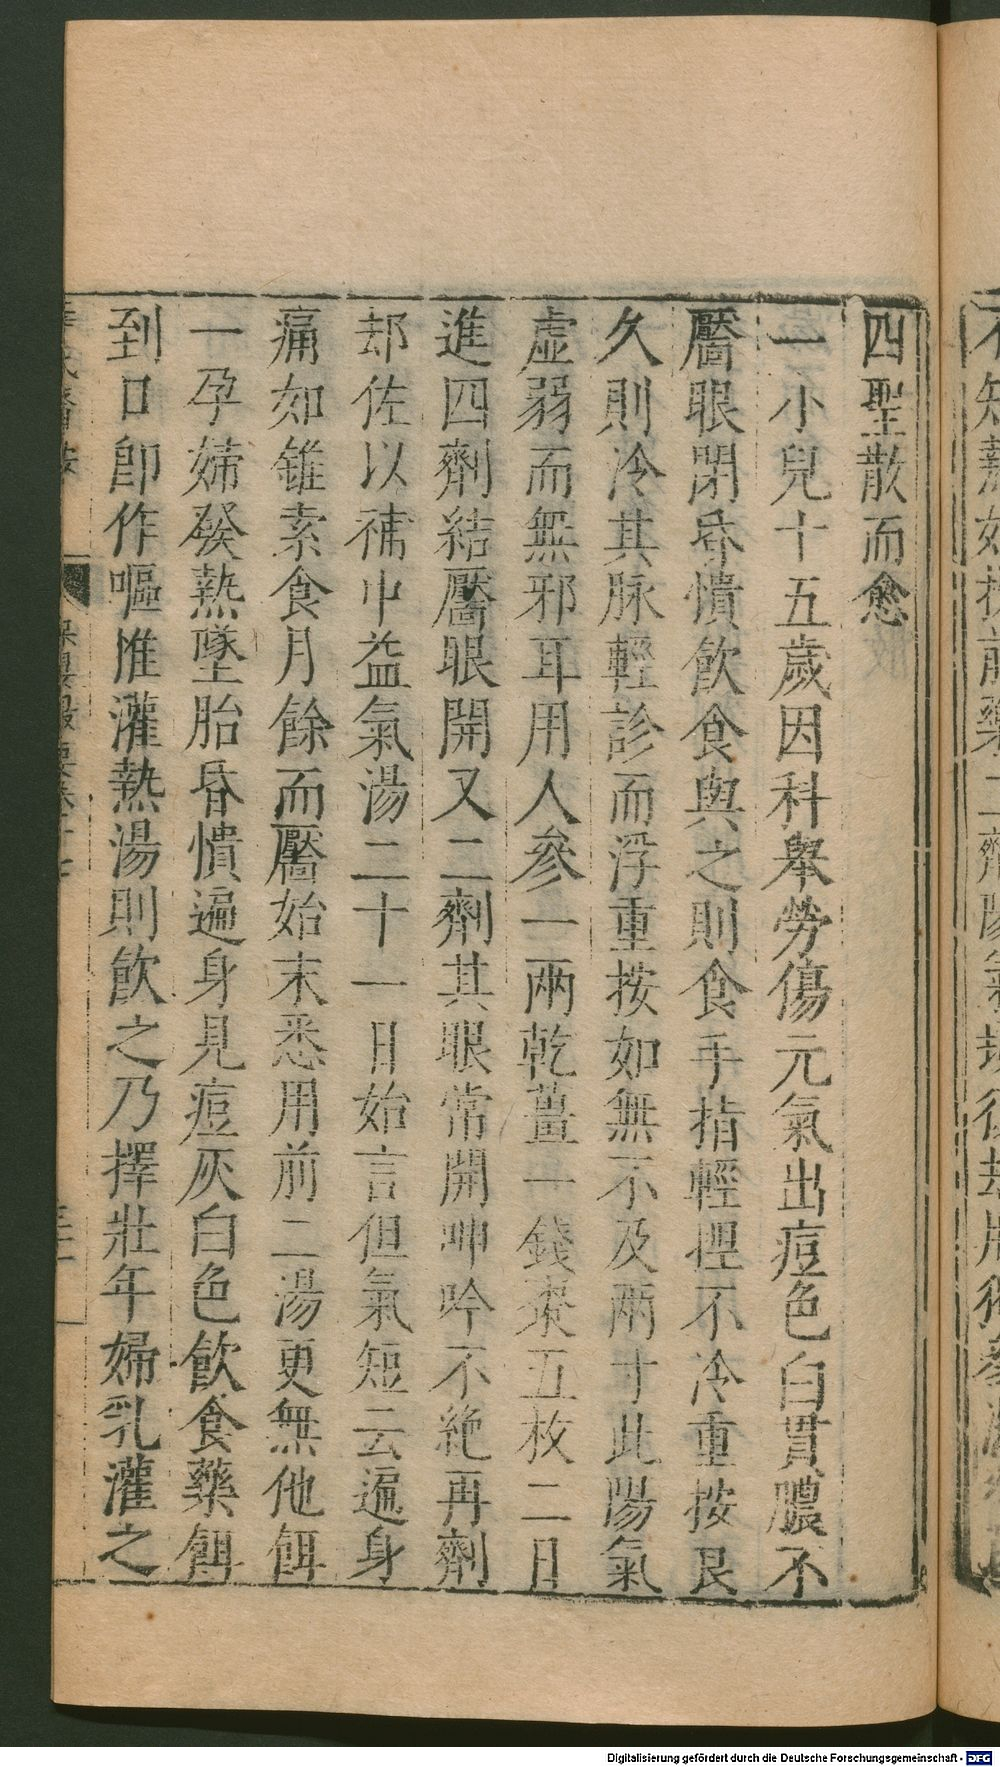 四聖散而愈
一小兒十五歲因科舉勞傷元氣出痘色白貫膿不
靨眼閉昏憒飲食與之則食手指輕捏不冷重按良
久則冷其脉輕診而浮重按如無不及兩寸此陽氣
虛弱而無邪耳用人參一兩乾薑一錢棗五枚二日
進四劑結靨眼開又二劑其眼常開呻吟不絶再劑
却佐以補中益氣湯二十一日始言但氣短云遍身
痛如錐索食月餘而靨始末悉用前二湯更無他餌
一孕婦發熱墜胎昏憒遍身見痘灰白色飲食藥餌
到口卽作嘔惟灌熱湯則飲之乃擇壯年婦乳灌之
Digitalisierung gefördert durch die Deutsche Forschungsgemeinschaft - DFG